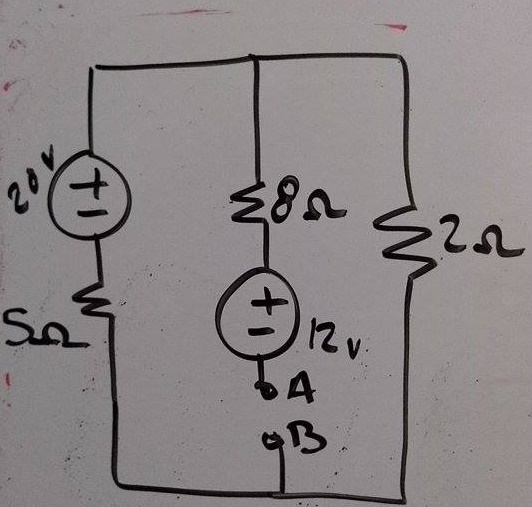 20V
+
-
8Ω
2Ω
5Ω
+
-
12V
A
B